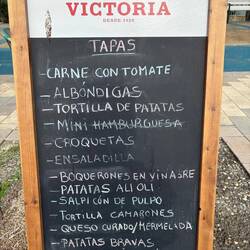 VICTORIA
DESDE 1928
TAPAS
- CARNE CON TOMATE
- ALBÓNDIGAS
- TORTILLA DE PATATAS
- MINI HAMBURGUESA
- CROQUETAS
- ENSALADILLA
- BOQUERONES EN VINAGRE
- PATATAS ALIOLI
- SALPICÓN DE PULPO
- TORTILLA CAMARONES
- QUESO CURADO/MERMELADA
- PATATAS BRAVAS